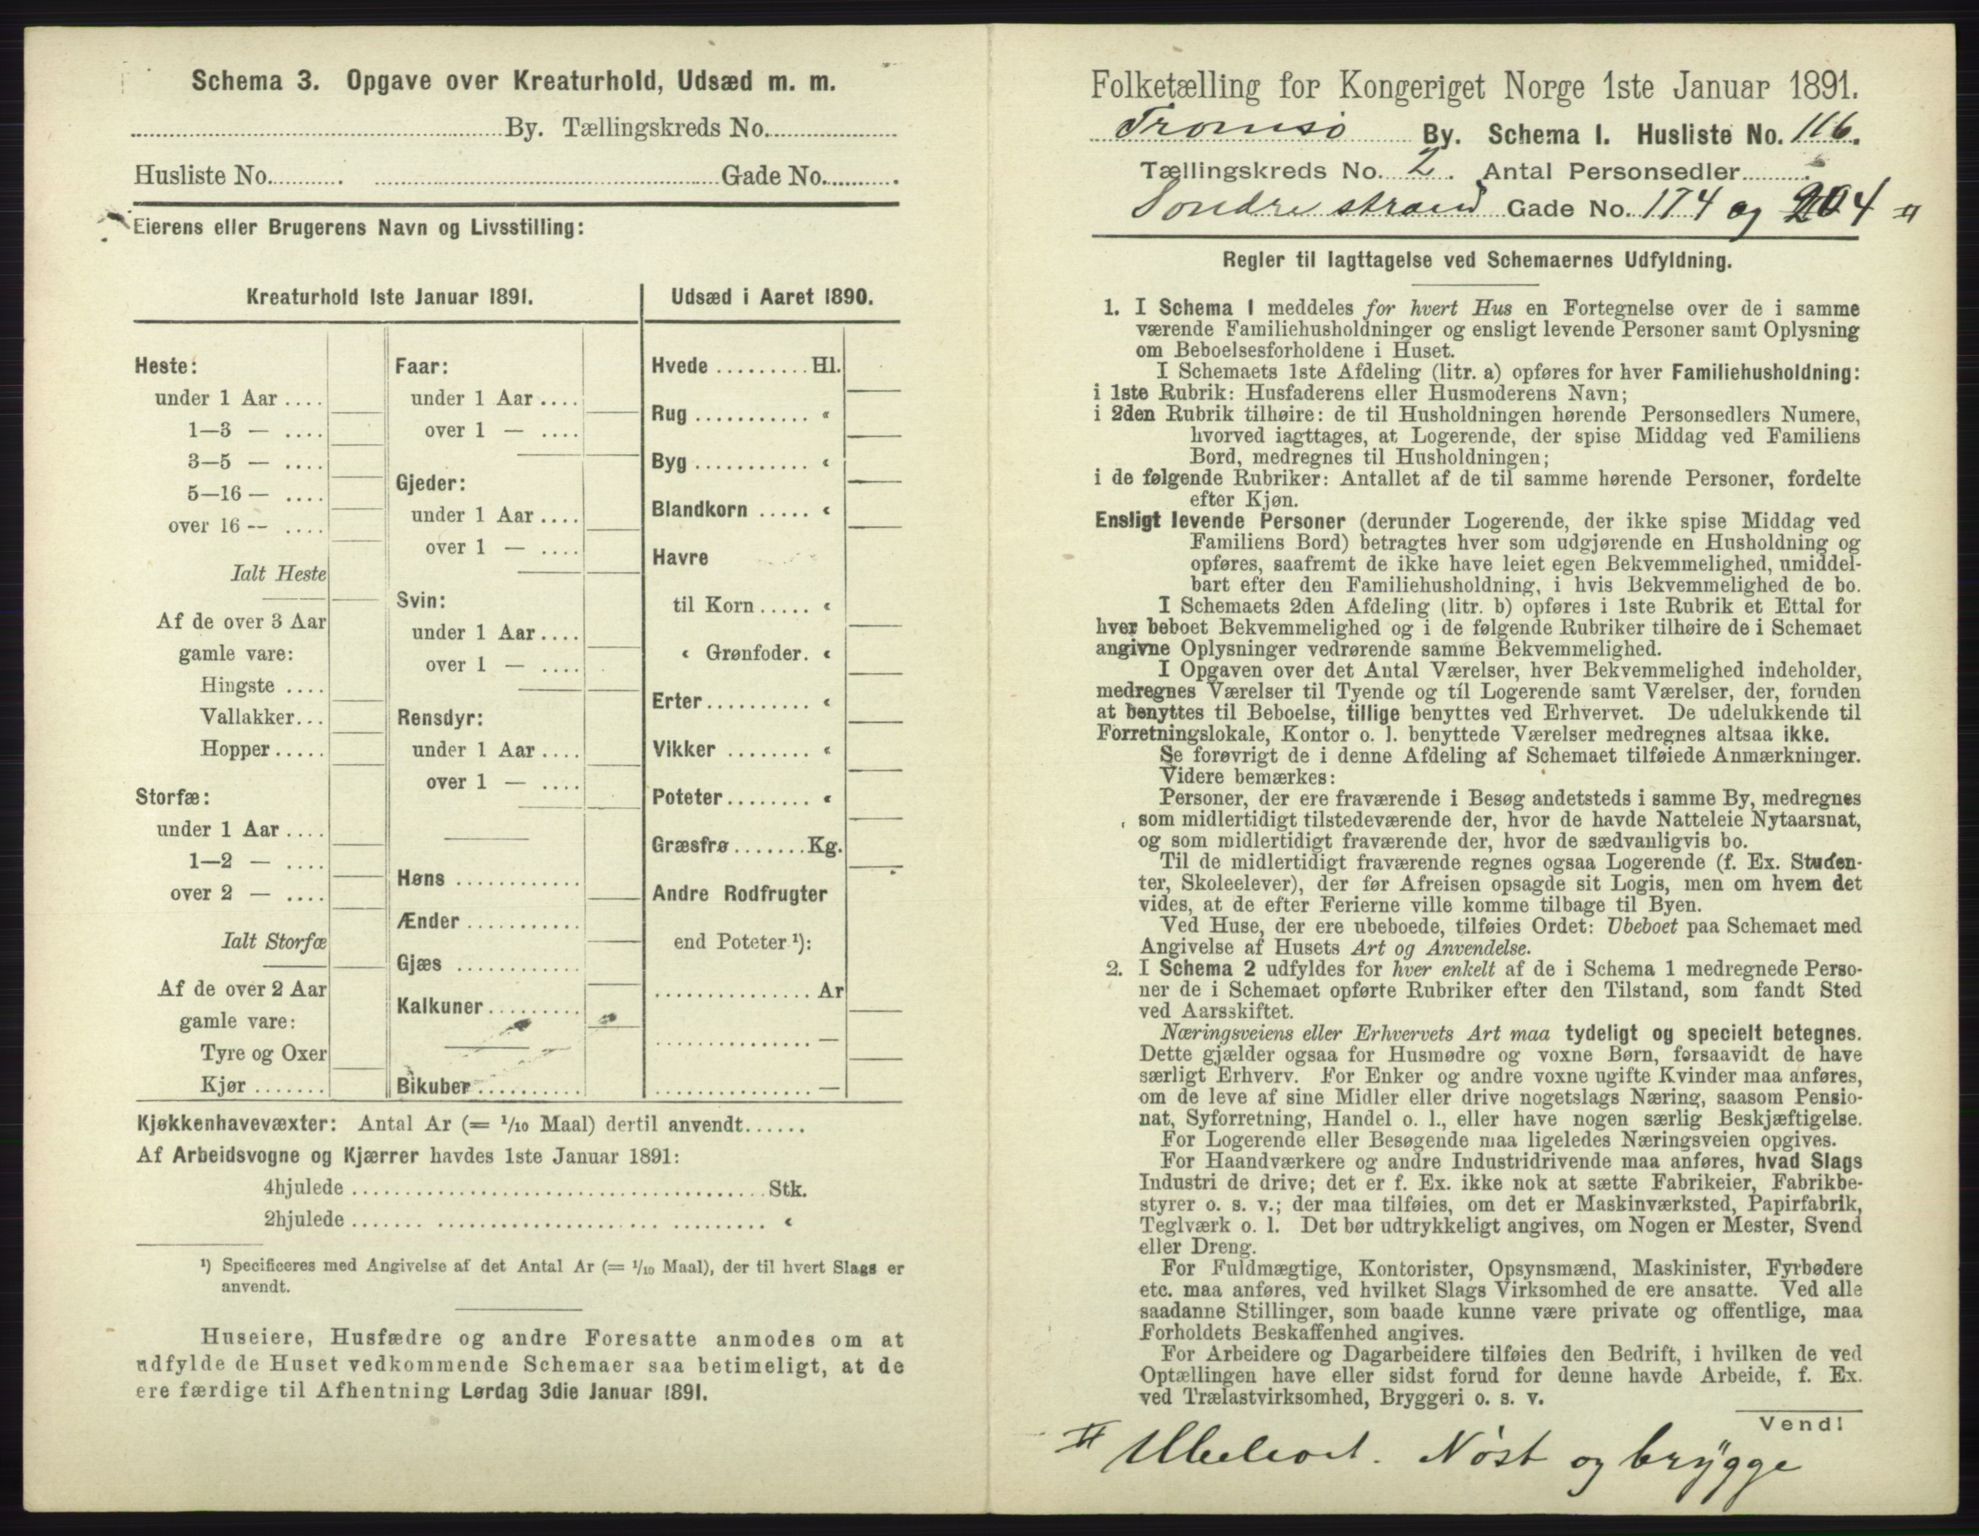 Schema 3. Opgave over Kreaturhold, Udsæd m. m.
By. Tællingskreds No.
Husliste No. Gade No.
Eierens eller Brugerens Navn og Livsstilling:
Kreaturhold 1ste Januar 1891.
Heste:
under 1 Aar ....
1—3 — ....
3—5 — ....
5—16 — ....
over 16 — ....
Ialt Heste
Af de over 3 Aar
gamle vare:
Hingste ....
Vallakker...
Hopper.....
Storfæ:
under 1 Aar ....
1—2 — ....
over 2 — ....
Ialt Storfæ
Af de over 2 Aar
gamle vare:
Tyre og Oxer
Kjør .......
Faar:
under 1 Aar ....
over 1 — ....
Gjeder:
under 1 Aar ....
over 1 — ....
Svin:
under 1 Aar ....
over 1 — ....
Rensdyr:
under 1 Aar ....
over 1 — ....
Høns ............
Ænder ...........
Gjæs ............
Kalkuner .........
Bikuber ..........
Udsæd i Aaret 1890.
Hvede ......... Hl.
Rug ........... «
Byg ........... «
Blandkorn ..... «
Havre
til Korn ..... «
« Grønfoder. «
Erter .......... «
Vikker ........ «
Poteter ........ «
Græsfrø ....... Kg.
Andre Rodfrugter
end Poteter ¹):
............... Ar
............... —
............... —
Kjøkkenhavevæxter: Antal Ar (= 1/10 Maal) dertil anvendt......
Af Arbeidsvogne og Kjærrer havdes 1ste Januar 1891:
4hjulede ........................................ Stk.
2hjulede ........................................ «
¹) Specificeres med Angivelse af det Antal Ar (= 1/10 Maal), der til hvert Slags er
anvendt.
Huseiere, Husfædre og andre Foresatte anmodes om at
udfylde de Huset vedkommende Schemaer saa betimeligt, at de
ere færdige til Afhentning Lørdag 3die Januar 1891.
Folketælling for Kongeriget Norge 1ste Januar 1891.
Tromsø By. Schema I. Husliste No. 116.
Tællingskreds No. 2. Antal Personsedler
Sondre strand Gade No. 174 og 204 #
Regler til Iagttagelse ved Schemaernes Udfyldning.
1. I Schema 1 meddeles for hvert Hus en Fortegnelse over de i samme
værende Familiehusholdninger og ensligt levende Personer samt Oplysning
om Beboelsesforholdene i Huset.
I Schemaets 1ste Afdeling (litr. a) opføres for hver Familiehusholdning:
i 1ste Rubrik: Husfaderens eller Husmoderens Navn;
i 2den Rubrik tilhøire: de til Husholdningen hørende Personsedlers Numere,
hvorved iagttages, at Logerende, der spise Middag ved Familiens
Bord, medregnes til Husholdningen;
i de følgende Rubriker: Antallet af de til samme hørende Personer, fordelte
efter Kjøn.
Ensligt levende Personer (derunder Logerende, der ikke spise Middag ved
Familiens Bord) betragtes hver som udgjørende en Husholdning og
opføres, saafremt de ikke have leiet egen Bekvemmelighed, umiddel-
bart efter den Familiehusholdning, i hvis Bekvemmelighed de bo.
I Schemaets 2den Afdeling (litr. b) opføres i 1ste Rubrik et Ettal for
hver beboet Bekvemmelighed og i de følgende Rubriker tilhøire de i Schemaet
angivne Oplysninger vedrørende samme Bekvemmelighed.
I Opgaven over det Antal Værelser, hver Bekvemmelighed indeholder,
medregnes Værelser til Tyende og til Logerende samt Værelser, der, foruden
at benyttes til Beboelse, tillige benyttes ved Erhvervet. De udelukkende til
Forretningslokale, Kontor o. l. benyttede Værelser medregnes altsaa ikke.
Se forøvrigt de i denne Afdeling af Schemaet tilføiede Anmærkninger.
Videre bemærkes:
Personer, der ere fraværende i Besøg andetsteds i samme By, medregnes
som midlertidigt tilstedeværende der, hvor de havde Natteleie Nytaarsnat,
og som midlertidigt fraværende der, hvor de sædvanligvis bo.
Til de midlertidigt fraværende regnes ogsaa Logerende (f. Ex. Studen-
ter, Skoleelever), der før Afreisen opsagde sit Logis, men om hvem det
vides, at de efter Ferierne ville komme tilbage til Byen.
Ved Huse, der ere ubeboede, tilføies Ordet: Ubeboet paa Schemaet med
Angivelse af Husets Art og Anvendelse.
2. I Schema 2 udfyldes for hver enkelt af de i Schema 1 medregnede Perso-
ner de i Schemaet opførte Rubriker efter den Tilstand, som fandt Sted
ved Aarsskiftet.
Næringsveiens eller Erhvervets Art maa tydeligt og specielt betegnes.
Dette gjælder ogsaa for Husmødre og voxne Børn, forsaavidt de have
særligt Erhverv. For Enker og andre voxne ugifte Kvinder maa anføres,
om de leve af sine Midler eller drive nogetslags Næring, saasom Pensio-
nat, Syforretning, Handel o. l., eller have nogen særlig Beskjæftigelse.
For Logerende eller Besøgende maa ligeledes Næringsveien opgives.
For Haandværkere og andre Industridrivende maa anføres, hvad Slags
Industri de drive; det er f. Ex. ikke nok at sætte Fabrikeier, Fabrikbe-
styrer o. s. v.; der maa tilføies, om det er Maskinværksted, Papirfabrik,
Teglværk o. l. Det bør udtrykkeligt angives, om Nogen er Mester, Svend
eller Dreng.
For Fuldmægtige, Kontorister, Opsynsmænd, Maskinister, Fyrbødere
etc. maa anføres, ved hvilket Slags Virksomhed de ere ansatte. Ved alle
saadanne Stillinger, som baade kunne være private og offentlige, maa
Forholdets Beskaffenhed angives.
For Arbeidere og Dagarbeidere tilføies den Bedrift, i hvilken de ved
Optællingen have eller sidst forud for denne havde Arbeide, f. Ex.
ved Trælastvirksomhed, Bryggeri o. s. v.
Vend!
# Ubeboet. Nøst og brygge